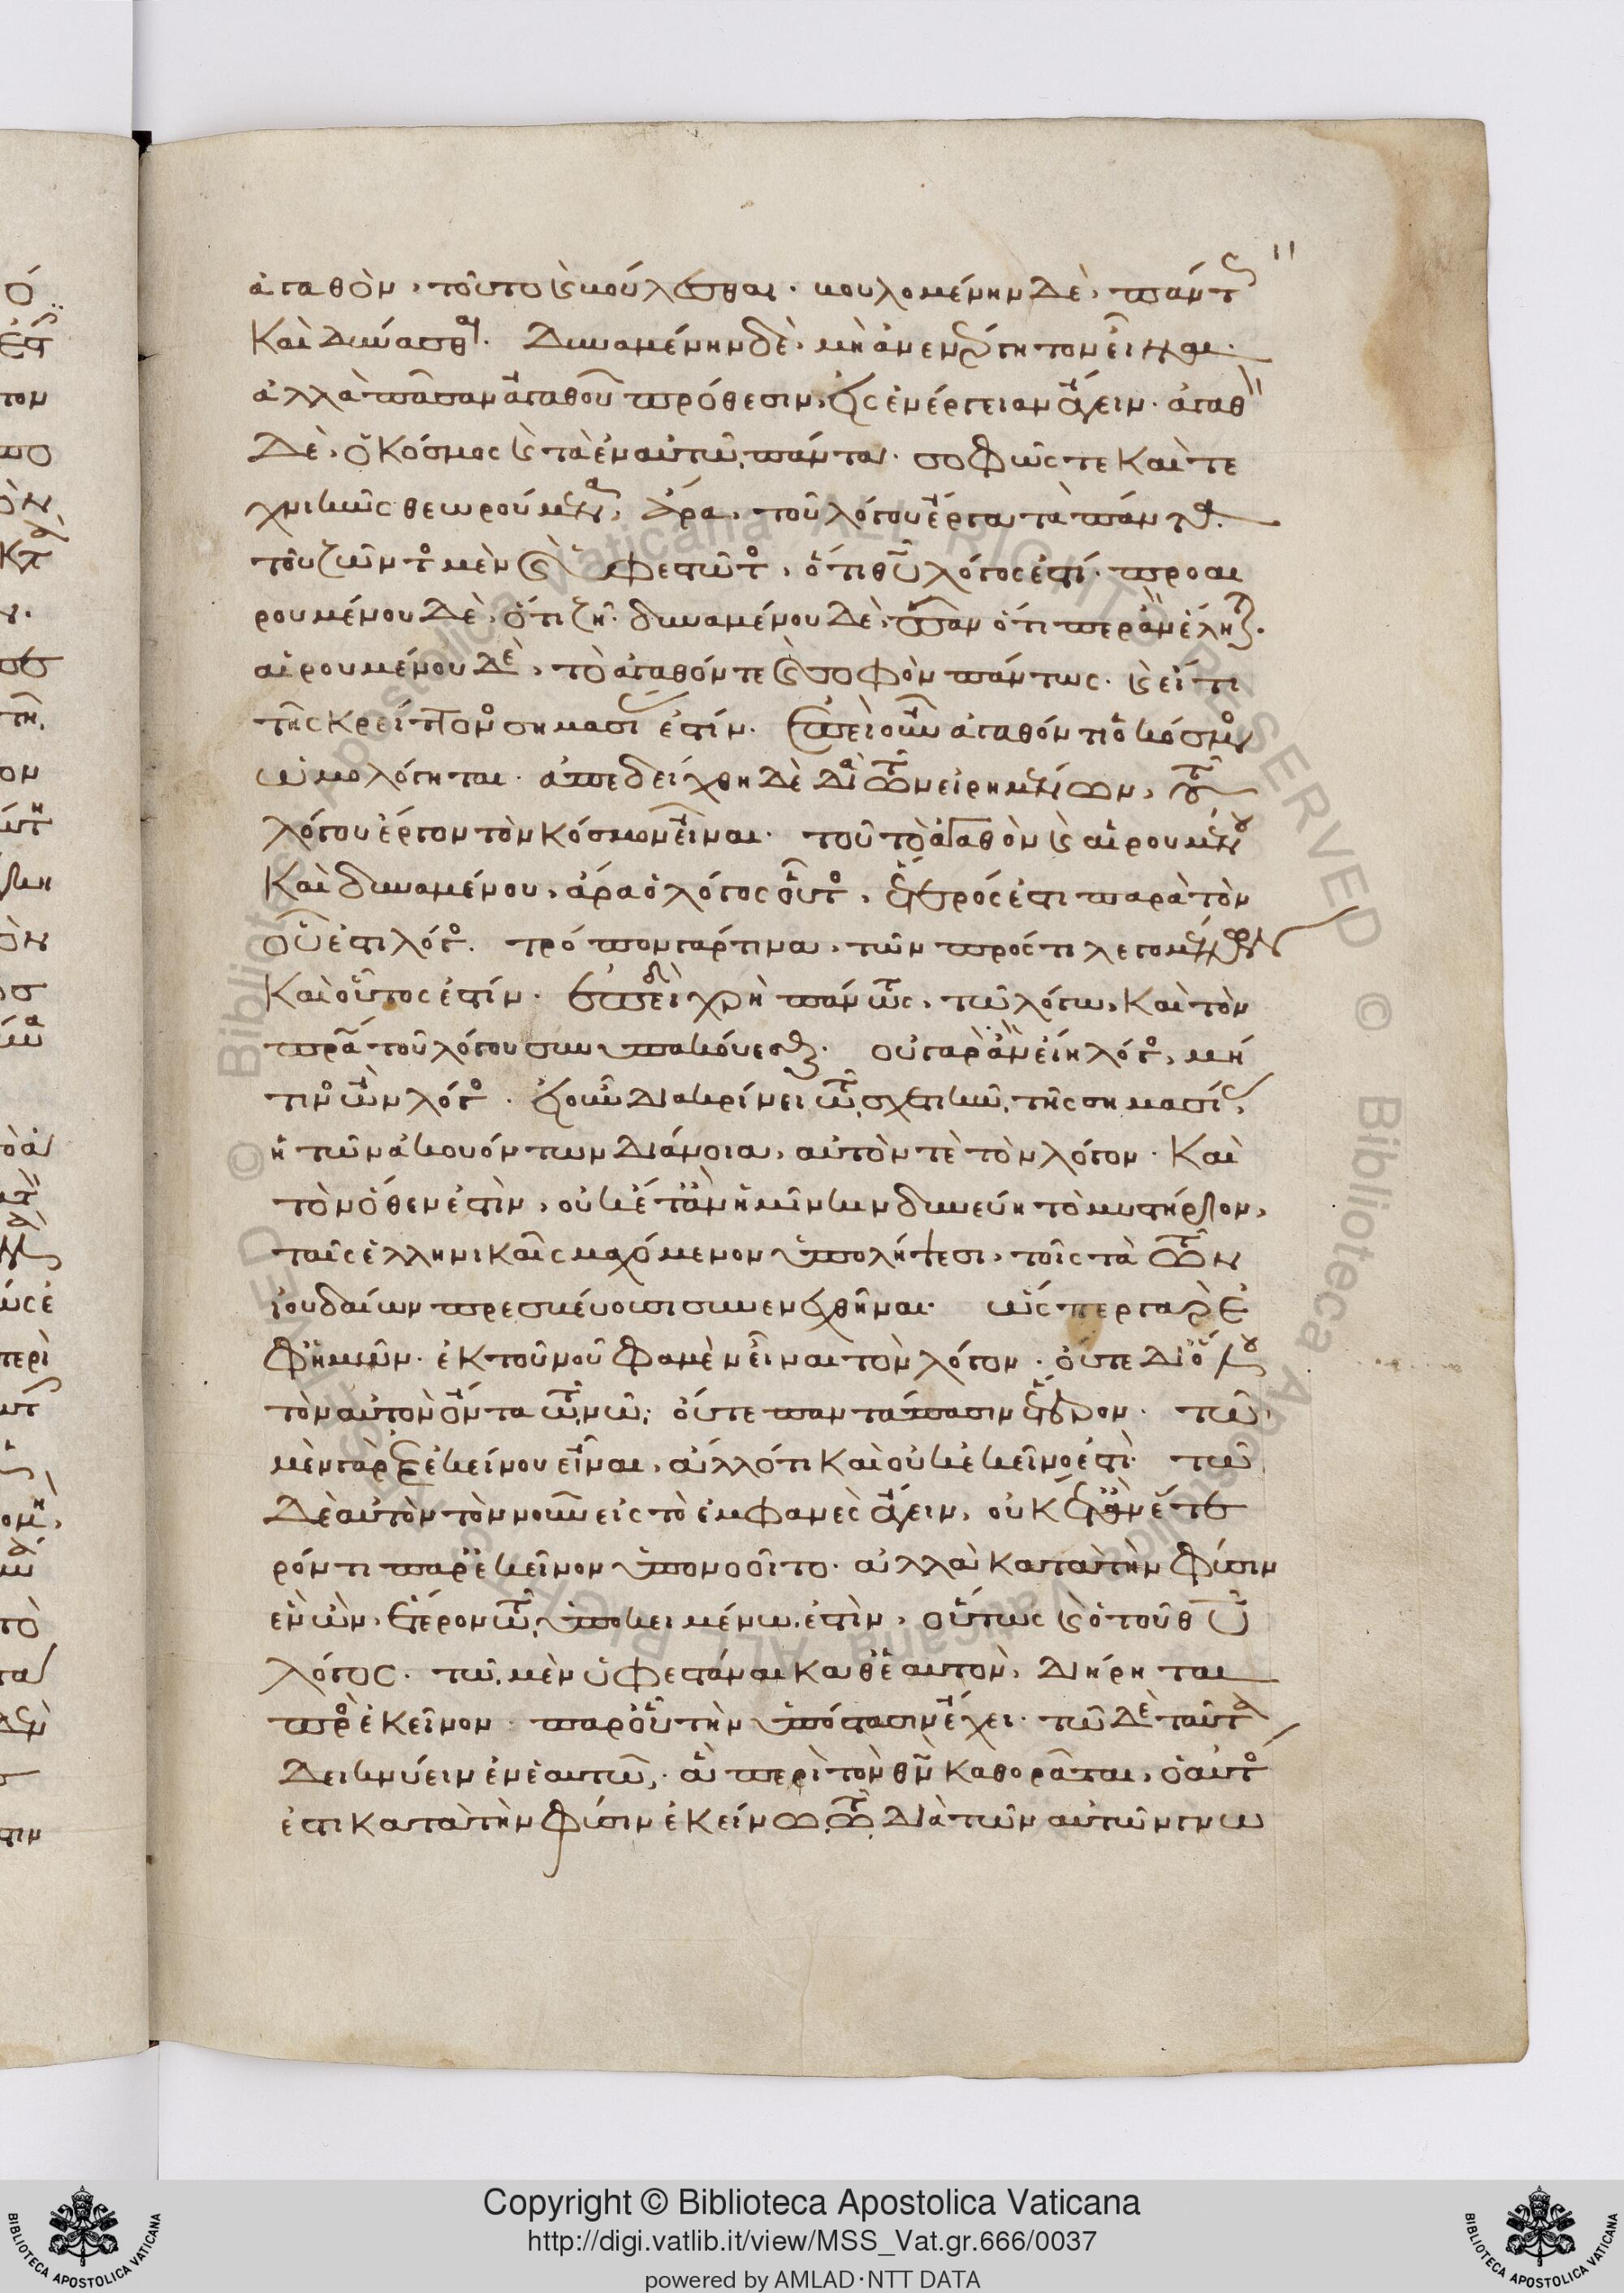 11
ἀγαθὸν, τοῦτο καὶ βούλεσθαι. βουλομένην δὲ, πάντως
καὶ δύνασθαι. δυναμένην δὲ, μὴ ἀνενέργητον εἶναι.
ἀλλὰ πᾶσαν ἀγαθοῦ πρόθεσιν, εἰς ἐνέργειαν ἄγειν. ἀγαθὸν
δὲ, ὁ κόσμος καὶ τὰ ἐν αὐτῷ πάντα. σοφῶς τε καὶ τε
χνικῶς θεωρούμενα, ἄρα, τοῦ λόγου ἔργα τὰ πάντα.
τοῦ ζῶντος μὲν καὶ ὑφεστῶτος, ὅτι θεοῦ λόγος ἐστί. προαι
ρουμένου δὲ, ὅτι ζῇ. δυναμένου δὲ, πᾶν ὅτιπερ ἂν ἕληται.
αἱρουμένου δὲ, τὸ ἀγαθόν τε καὶ σοφὸν πάντως. καὶ εἴ τι
τῆς κρείττονος σημασίας ἐστίν. ἐπεὶ οὖν ἀγαθόν τι ὁ κόσμος
ὡμολόγηται. ἀπεδείχθη δὲ διὰ τῶν εἰρημένων, τοῦ
λόγου ἔργον τὸν κόσμον εἶναι. τοῦ τὸ ἀγαθὸν καὶ αἱρουμένου
καὶ δυναμένου, ἄρα ὁ λόγος οὗτος, ἕτερός ἐστι παρὰ τὸν
οὗ ἐστι λόγος. τρόπον γάρ τινα, τῶν πρός τι λεγομένων
καὶ οὗτός ἐστιν. ἐπειδὴ χρὴ πάντως, τῷ λόγῳ, καὶ τὸν
πατέρα τοῦ λόγου συνυπακούεσθαι. οὐ γὰρ ἂν εἴη λόγος, μή
τινος ὢν λόγος. εἰ οὖν διακρίνει τῷ σχετικῷ τῆς σημασίας,
ἡ τῶν ἀκουόντων διάνοια, αὐτόν τε τὸν λόγον. καὶ
τὸν ὅθεν ἐστὶν, οὐκέτ' ἂν ἡμῖν κινδυνεύῃ τὸ μυστήριον,
ταῖς ἑλληνικαῖς μαχόμενον ὑπολήψεσι, τοῖς τὰ τῶν
ἰουδαίων πρεσβεύουσι συνενεχθῆναι. ὥσπερ γὰρ ἐ
φ' ἡμῶν. ἐκ τοῦ νοῦ φαμὲν εἶναι τὸν λόγον. οὔτε δι' ὅλου
τὸν αὐτὸν ὄντα τῷ νῷ, οὔτε παντάπασιν ἕτερον. τῷ
μὲν γὰρ ἐξ ἐκείνου εἶναι, ἄλλό τι καὶ οὐκ ἐκεῖνό ἐστι. τῷ
δὲ αὐτὸν τὸν νοῦν εἰς τὸ ἐμφανὲς ἄγειν, οὐκέτ' ἂν ἕτε
ρόν τι παρ' ἐκεῖνον ὑπονοοῖτο. ἀλλὰ κατὰ τὴν φύσιν
ἓν ὢν, ἕτερον τῷ ὑποκειμένῳ ἐστὶν, οὕτως καὶ ὁ τοῦ θεοῦ
λόγος. τῷ μὲν ὑφεστάναι καθ' ἑαυτὸν, διῄρηται
πρὸς ἐκεῖνον παρ' οὗ τὴν ὑπόστασιν ἔχει. τῷ δὲ ταῦτα
δεικνύειν ἐν ἑαυτῷ, ἃ περὶ τὸν θεὸν καθορᾶται, ὁ αὐτός
ἐστι κατὰ τὴν φύσιν ἐκείνῳ τῷ διὰ τῶν αὐτῶν γνω
Copyright © Biblioteca Apostolica Vaticana
http://digi.vatlib.it/view/MSS_Vat.gr.666/0037
powered by AMLAD·NTT DATA